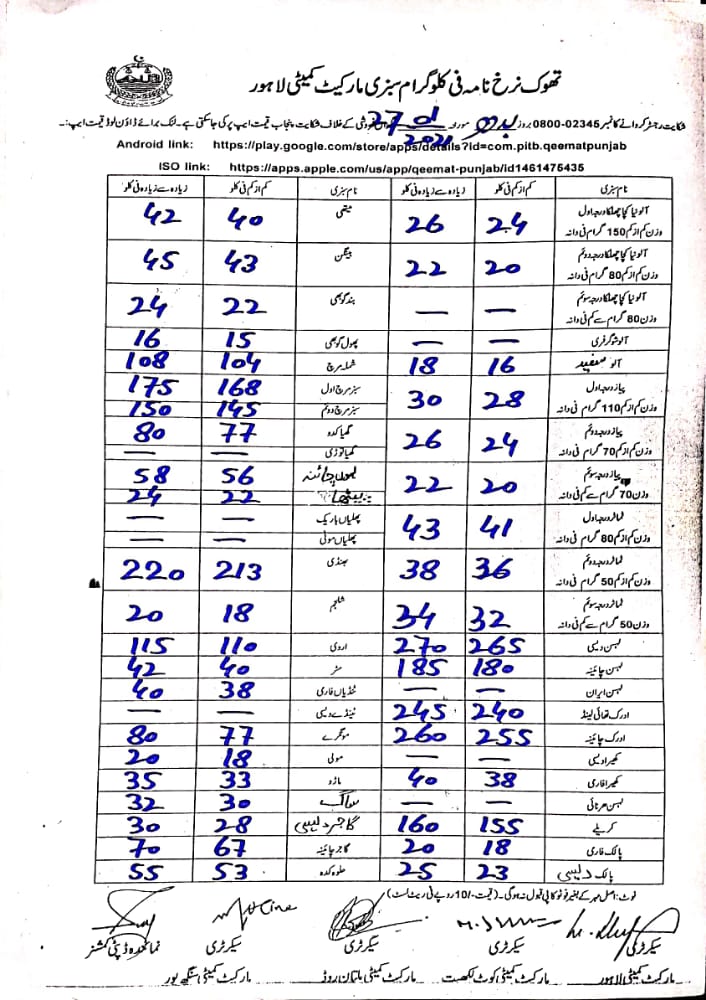 تھوک نرخ نامہ فی کلوگرام سبزی مارکیٹ کمیٹی لاہور
شکایت رجسٹر کروانے کا نمبر 02345-0800 بروز بدھ مورخہ 27 01 2021 کے خلاف شکایت پنجاب قیمت ایپ پر کی جاسکتی ہے۔ لنک برائے ڈاؤن لوڈ قیمت ایپ:۔
Android link: https://play.google.com/store/apps/details?id=com.pitb.qeematpunjab
ISO link: https://apps.apple.com/us/app/qeemat-punjab/id1461475435
نام سبزی کم از کم فی کلو زیادہ سے زیادہ فی کلو نام سبزی کم از کم فی کلو زیادہ سے زیادہ فی کلو
آلو نیا کچا چھلکا درجہ اول 24 26 میتھی 40 42
وزن کم از کم 150 گرام فی دانہ
آلو نیا کچا چھلکا درجہ دوئم 20 22 بینگن 43 45
وزن کم از کم 80 گرام فی دانہ
آلو نیا کچا چھلکا درجہ سوئم — — بند گوبھی 22 24
وزن 80 گرام سے کم فی دانہ
آلو شوگر فری — — پھول گوبھی 15 16
آلو سفید 16 18 شملہ مرچ 104 108
پیاز درجہ اول 28 30 سبز مرچ اول 168 175
وزن کم از کم 110 گرام فی دانہ سبز مرچ دوئم 145 150
پیاز درجہ دوئم 24 26 گھیا کدو 77 80
وزن کم از کم 70 گرام فی دانہ گھیا توڑی — —
پیاز درجہ سوئم 20 22 لیموں چائنہ 56 58
وزن 70 گرام سے کم فی دانہ پیٹھا 22 24
ٹماٹر درجہ اول 41 43 پھلیاں باریک — —
وزن کم از کم 80 گرام فی دانہ پھلیاں موٹی — —
ٹماٹر درجہ دوئم 36 38 بھنڈی 213 220
وزن کم از کم 50 گرام فی دانہ
ٹماٹر درجہ سوئم 32 34 شلجم 18 20
وزن 50 گرام سے کم فی دانہ
لہسن دیسی 265 270 اروی 110 115
لہسن چائینہ 180 185 مٹر 40 42
لہسن ایران — — ٹینڈیاں فارمی 38 40
ادرک تھائی لینڈ 240 245 ٹینڈے دیسی — —
ادرک چائینہ 255 260 مونگرے 77 80
کھیرا دیسی — — مولی 18 20
کھیرا فارمی 38 40 ماڑو 33 35
لہسن ہرنائی — — ساگ 30 32
کریلے 155 160 گاجر دیسی 28 30
پالک فارمی 18 20 گاجر چائینہ 67 70
پالک دیسی 23 25 حلوہ کدو 53 55
نوٹ: اصل مہر کے بغیر فوٹو کاپی قبول نہ ہوگی۔ (قیمت -/10 روپے فی ریٹ لسٹ)
سیکرٹری سیکرٹری سیکرٹری سیکرٹری نمائندہ ڈپٹی کمشنر
مارکیٹ کمیٹی لاہور مارکیٹ کمیٹی کوٹ لکھپت مارکیٹ کمیٹی ملتان روڈ مارکیٹ کمیٹی سنگھ پور